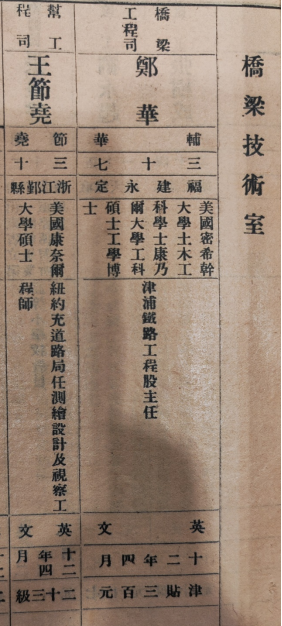 橋梁技術室
橋梁
工程司
鄭華
輔華
三十七
福建永定
美國密希幹
大學土木工
科學士康乃
爾大學工科
碩士工學博
士
津浦鐵路工程股主任
英文
十二年四月
津貼三百元
幫工
程司
王節堯
節堯
三十
浙江鄞縣
美國康奈爾
大學碩士
紐約充道路局任測繪設計及視察工
程師
英文
十二年四月
二十三級